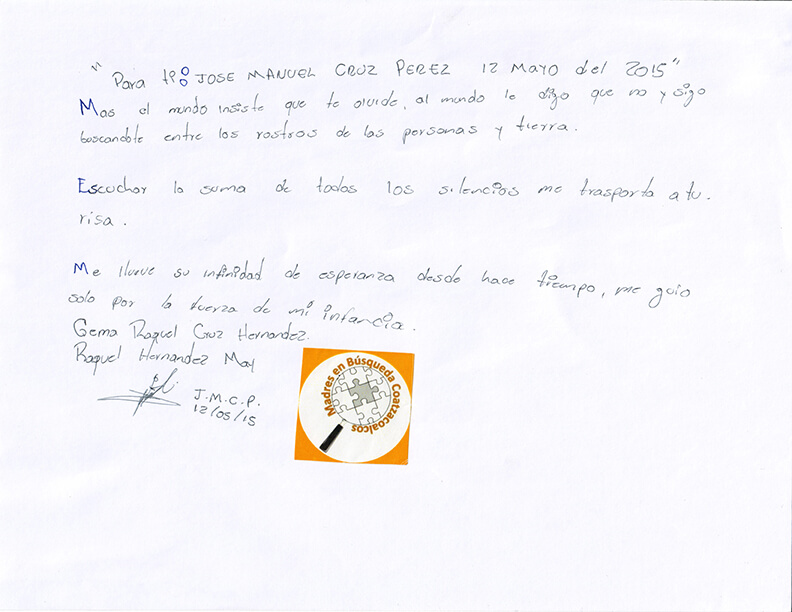 "Para ti: JOSE MANUEL CRUZ PEREZ 12 MAYO del 2015"
Mas el mundo insiste que te olvide, al mundo le digo que no y sigo
buscandote entre los rostros de las personas y tierra.
Escuchar la suma de todas los silencios me trasporta a tu.
risa.
Me llueve su infinidad de esperanza desde hace tiempo, me guio
solo por la fuerza de mi infancia.
Gema Raquel Cruz Hernandez.
Raquel Hernandez May
J.M.C.P.
12/05/15
Madres en Búsqueda Coatzacoalcos